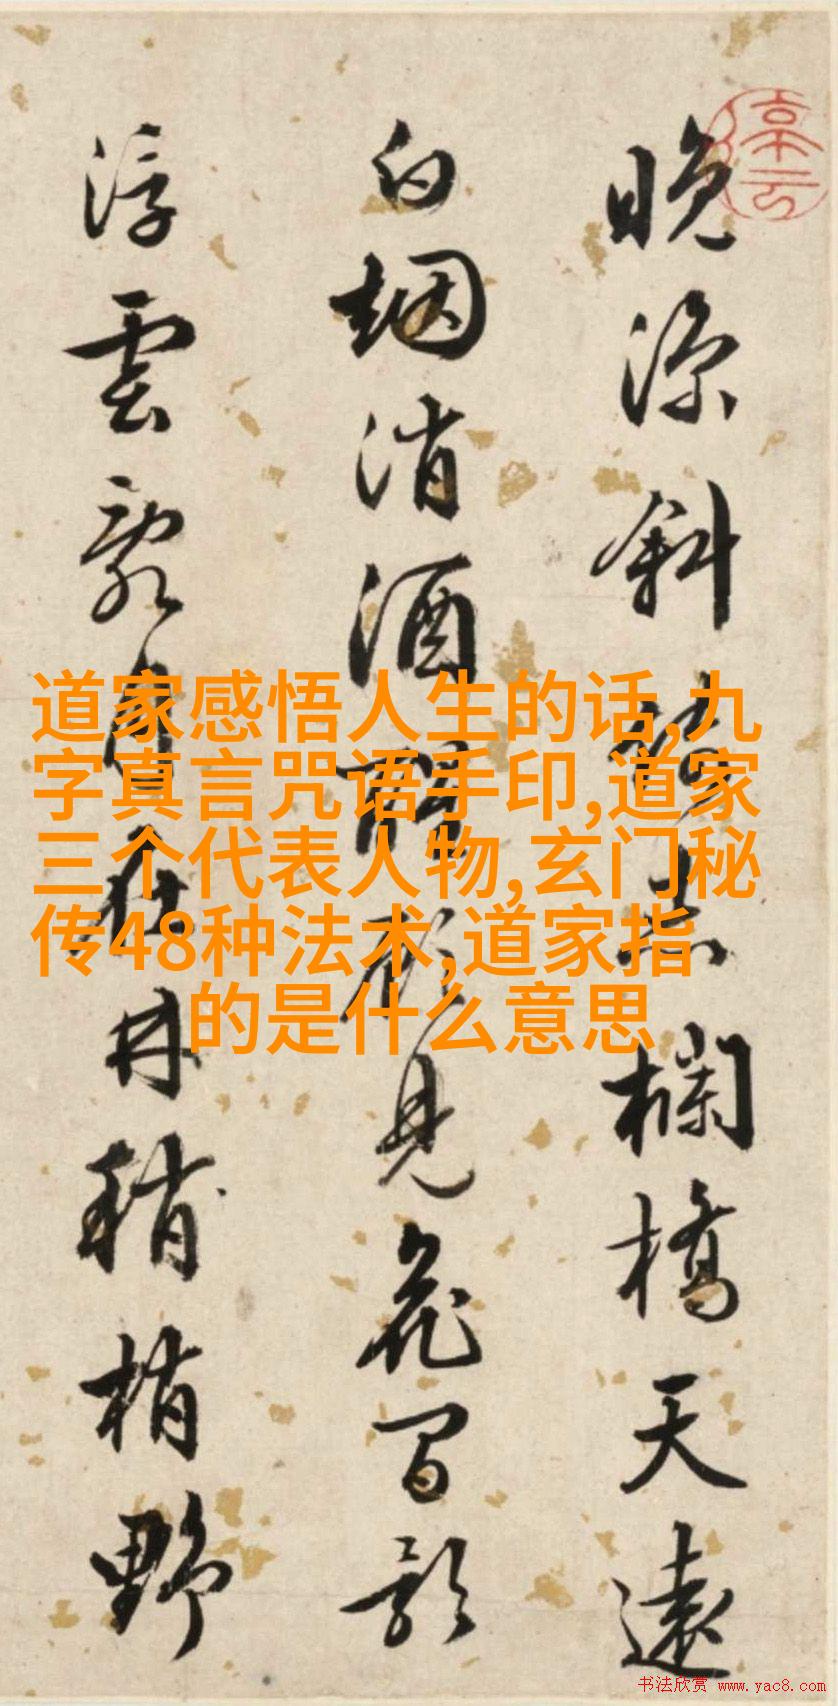 晚凉斜 赤欄橋天遠
白烟消酒醒 見花間影
浮雲 自在林稍梢野
道家感悟人生的话,九
字真言咒语手印,道家
三个代表人物,玄门秘
传48种法术,道家指
的是什么意思
书法欣赏 www.yac8.com